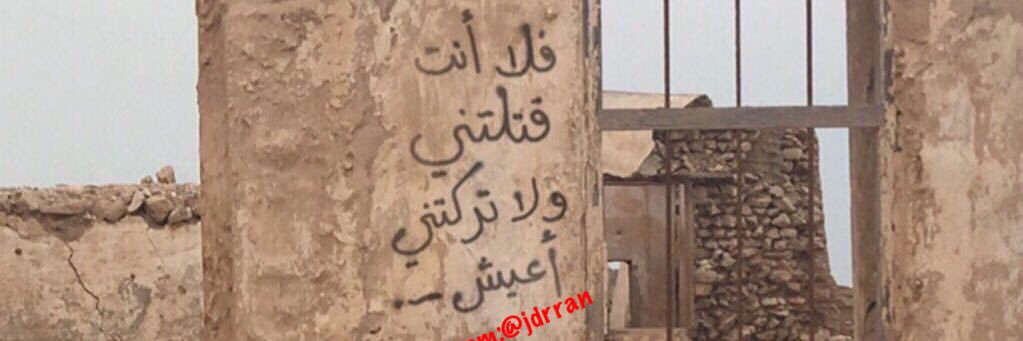 فلا أنت
قتلتني
ولا تركتني
أعيش
m:@jdrran